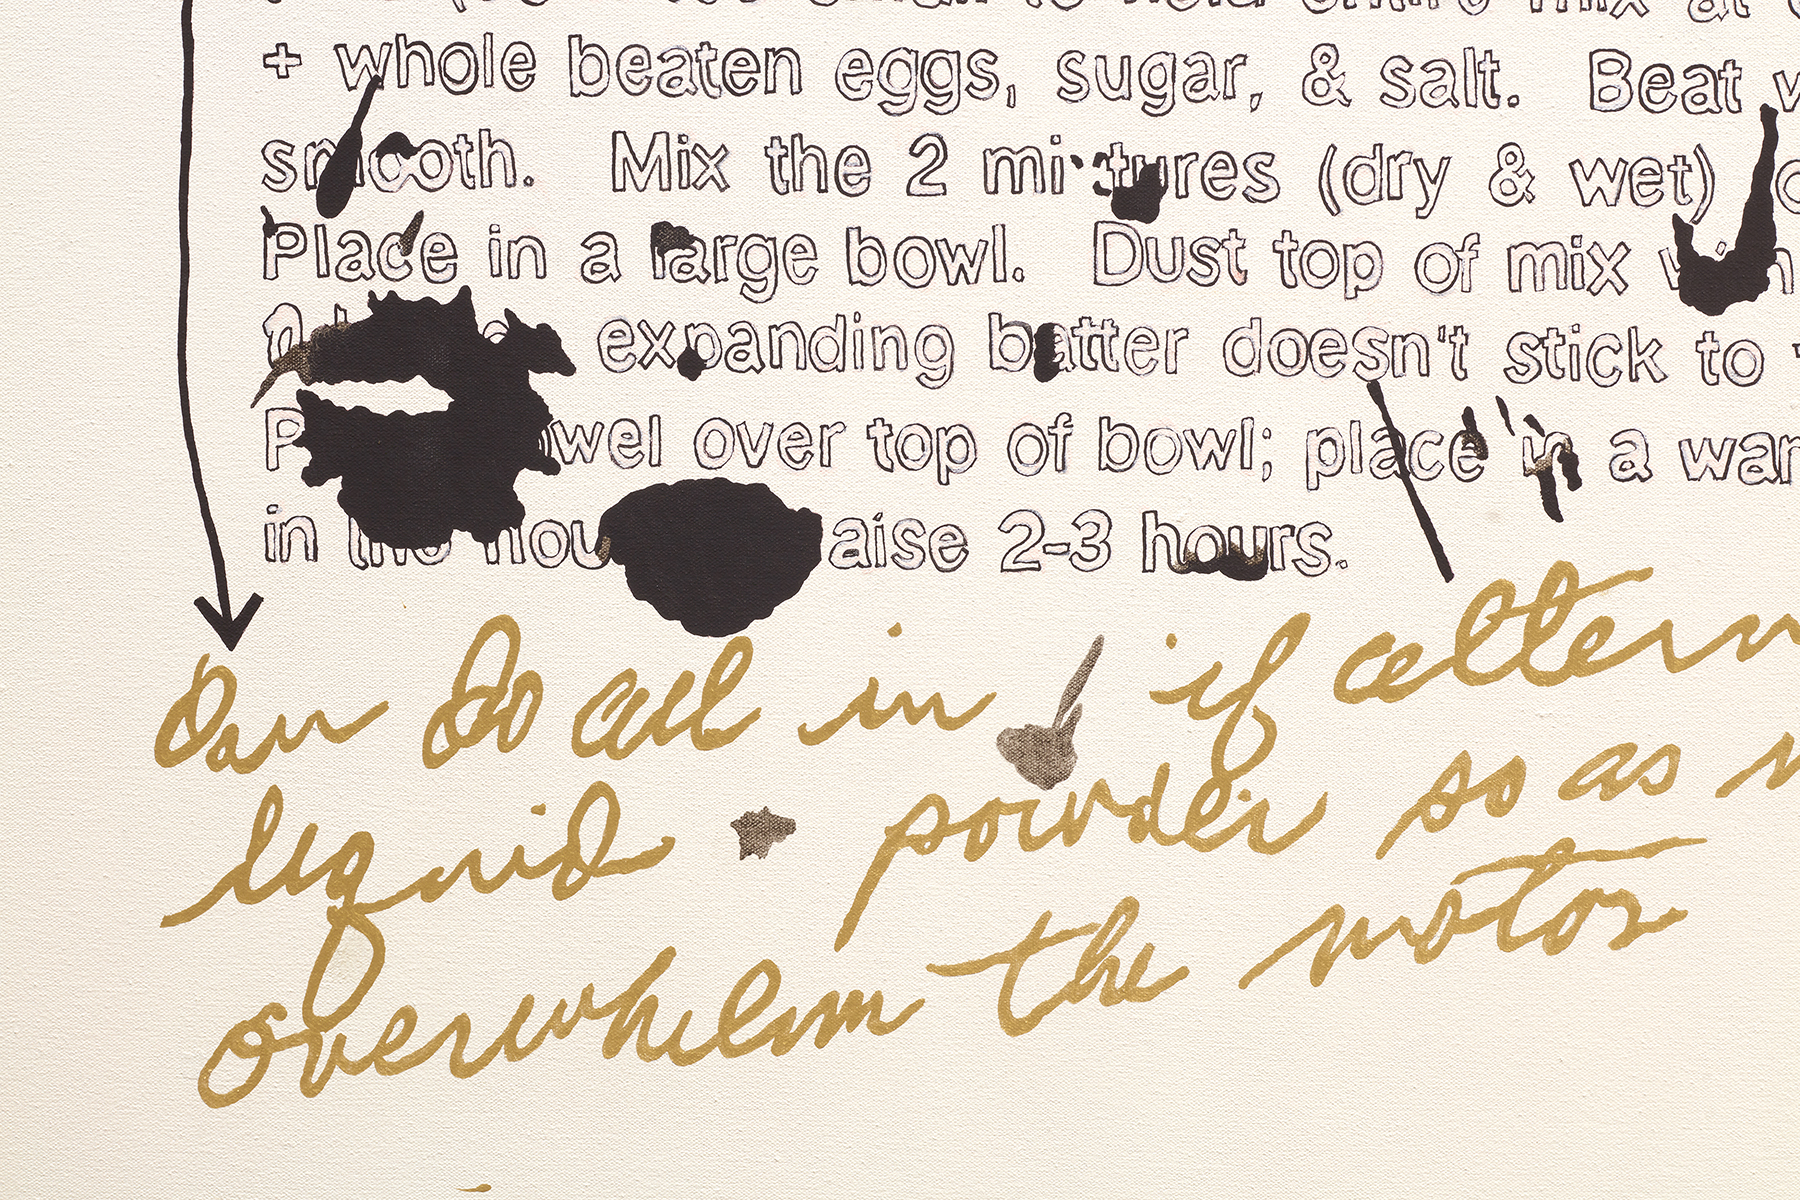 to hold entire mix at
+ whole beaten eggs, sugar, & salt. Beat
smooth. Mix the 2 mixtures (dry & wet)
Place in a large bowl. Dust top of mix with
expanding batter doesn't stick to
over top of bowl; place in a
in the 2-3 hours.
Can do all in if altern
liquid powder so as
overwhelm the motor